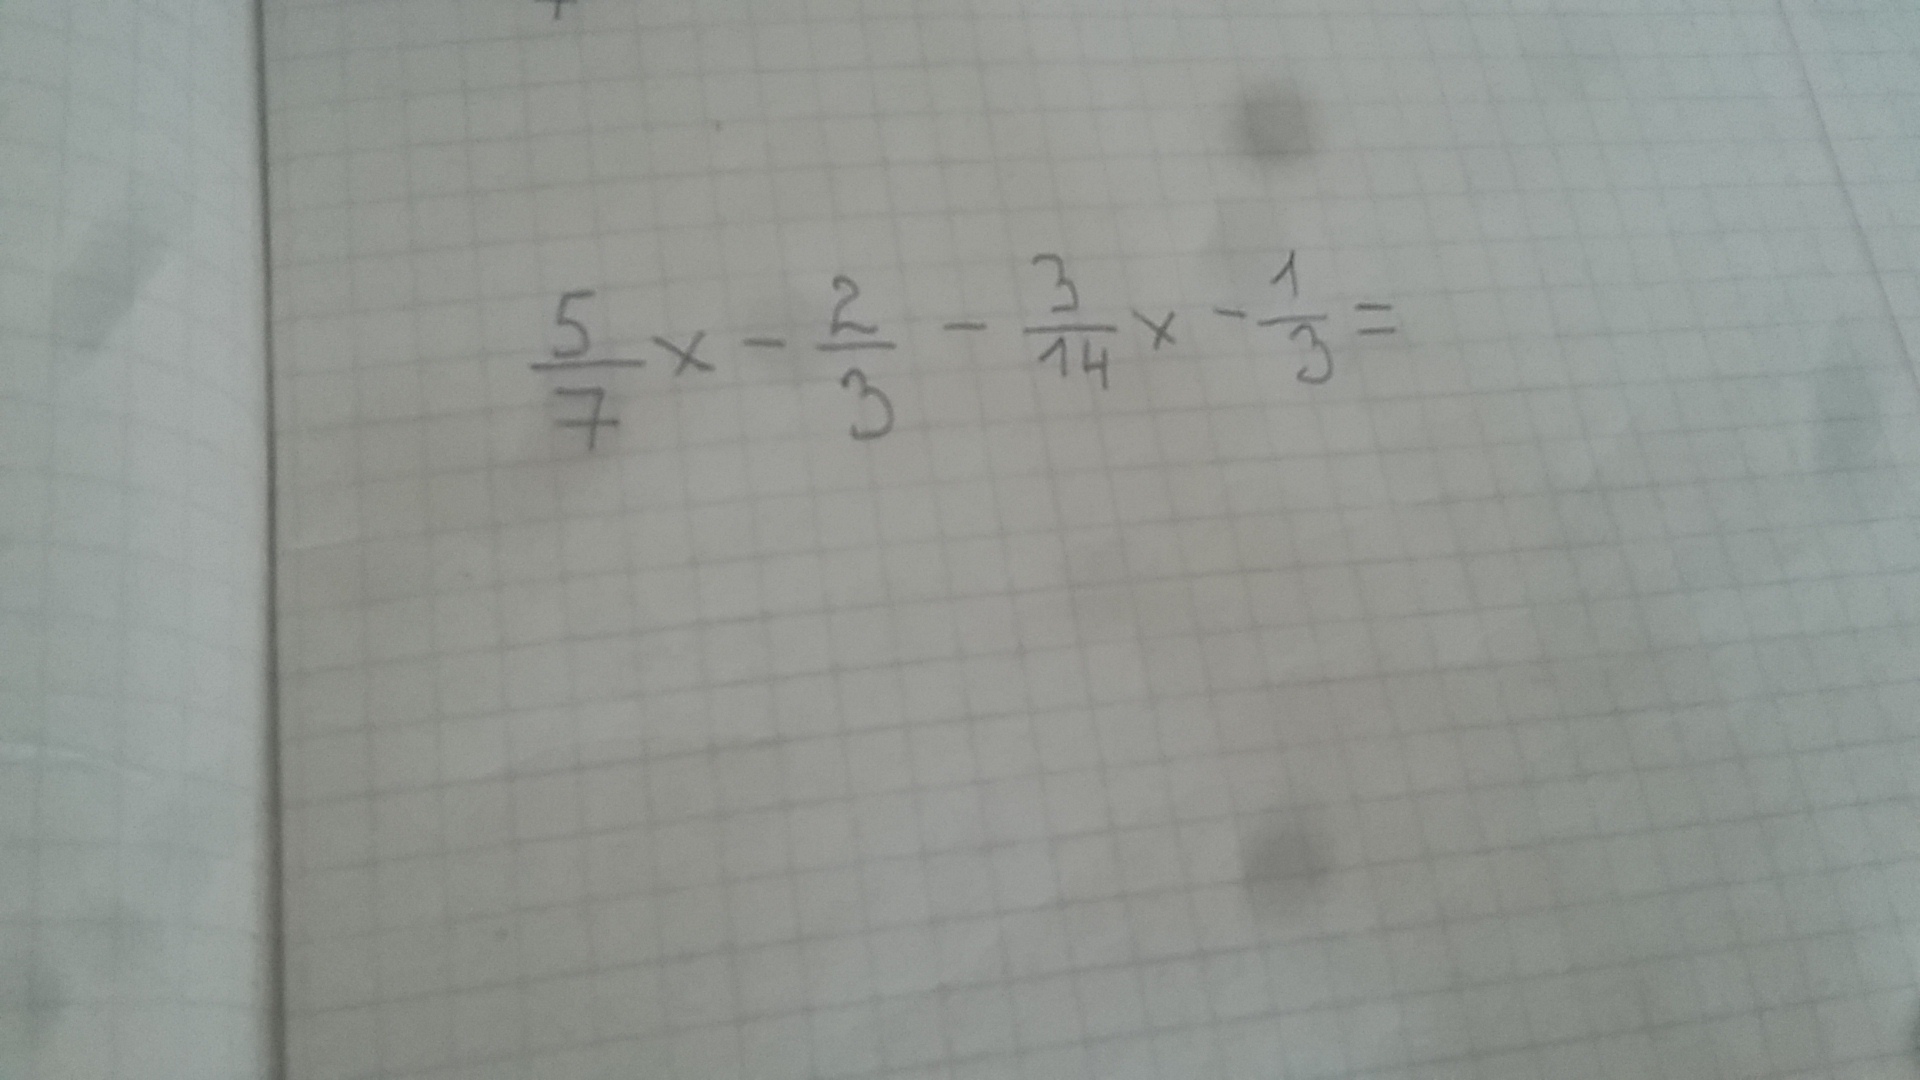 5/7 x - 2/3 - 3/14 x - 1/3 =